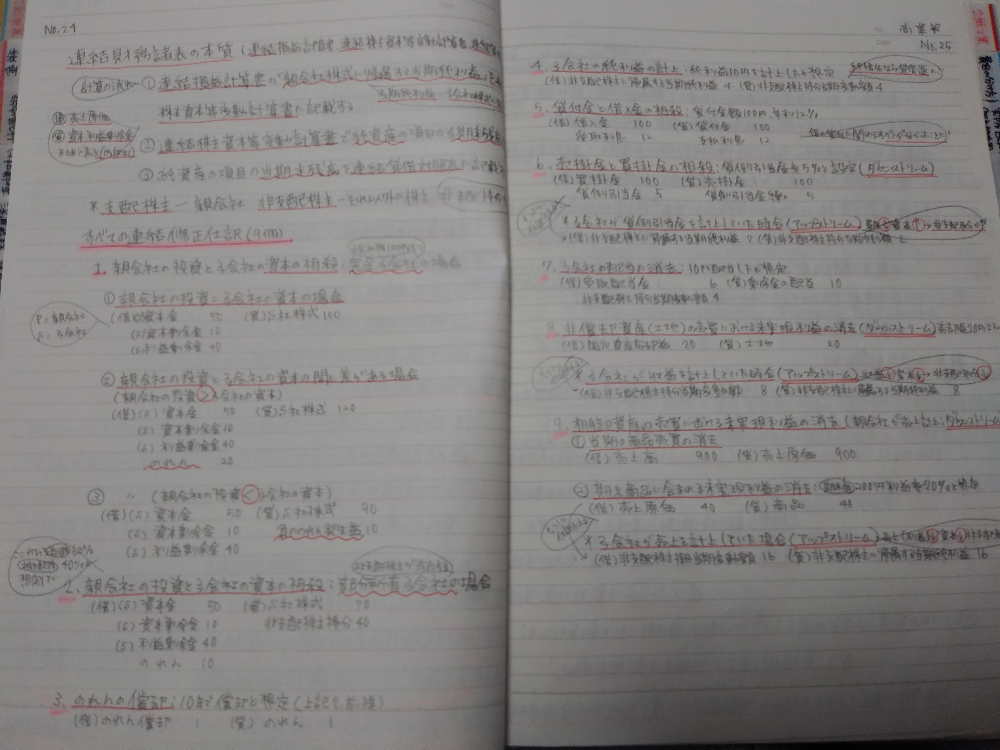 No.24
連結財務諸表の本質(連結損益計算書、連結株主資本等変動計算書、
計算の流れ ①連結損益計算書の「親会社株式に帰属する当期純利益」を
株主資本等変動計算書に記載する
②連結株主資本等変動計算書で純資産の項目の当期末残高
③純資産の項目の当期末残高を連結貸借対照表に
*支配株主―親会社 非支配株主―それ以外の株主
すべての連結修正仕訳(9個)
1. 親会社の投資と子会社の資本の相殺:完全子会社の場合
①親会社の投資=子会社の資本の場合
P=親会社
S=子会社
(借)(S)資本金 50 (貸)S社株式 100
(S)資本剰余金 10
(S)利益剰余金 40
②親会社の投資と子会社の資本の間に差がある場合
(親会社の投資>子会社の資本)
(借)(S)資本金 50 (貸)S社株式 120
(S)資本剰余金 10
(S)利益剰余金 40
のれん 20
③ 〃 (親会社の投資<子会社の資本)
(借)(S)資本金 50 (貸)S社株式 90
(S)資本剰余金 10 負ののれん発生益 10
(S)利益剰余金 40
2. 親会社の投資と子会社の資本の相殺:部分所有子会社の場合
(借)(S)資本金 50 (貸)S社株式 70
(S)資本剰余金 10 非支配株主持分 40
(S)利益剰余金 40
のれん 10
3. のれんの償却:10年で償却と想定(上記を前提)
(借)のれん償却 1 (貸)のれん 1
商業簿
No.25
4. 子会社の純利益の計上:純利益10円を計上したと想定
(借)非支配株主に帰属する当期純利益 4 (貸)非支配株主持分当期変動額 4
5. 貸付金と借入金の相殺:貸付金額100円、年利12%
(借)借入金 100 (貸)貸付金 100
受取利息 12 支払利息 12
6. 売掛金と買掛金の相殺:貸倒引当金を5%と設定(ダウンストリーム)
(借)買掛金 100 (貸)売掛金 100
貸倒引当金 5 貸倒引当金繰入 5
*子会社が貸倒引当金を計上していた場合(アップストリーム)
(借)非支配株主に帰属する当期純利益 2 (貸)非支配株主持分当期変動額 2
7. 子会社の配当た消去:10円配当したと想定
(借)受取配当金 6 (貸)剰余金の配当 10
非支配株主持分当期変動額 4
8. 非償却資産(土地)の売買における未実現利益の消去(ダウンストリーム)
(借)固定資産売却益 20 (貸)土地 20
*子会社が収益を計上していた時合(アップストリーム)
(借)非支配株主持分当期変動額 8 (貸)非支配株主に帰属する当期純利益 8
9. 棚卸資産の売買における未実現利益の消去(親会社が売上計上:ダウンストリーム
①当期の商品売買の消去
(借)売上高 900 (貸)売上原価 900
②期末商品に含まれる未実現利益の消去:期末商品200円利益率20%と想定
(借)売上原価 40 (貸)商品 40
*子会社が売上を計上していた場合(アップストリーム)
(借)非支配株主持分当期変動額 16 (貸)非支配株主に帰属する当期純利益 16